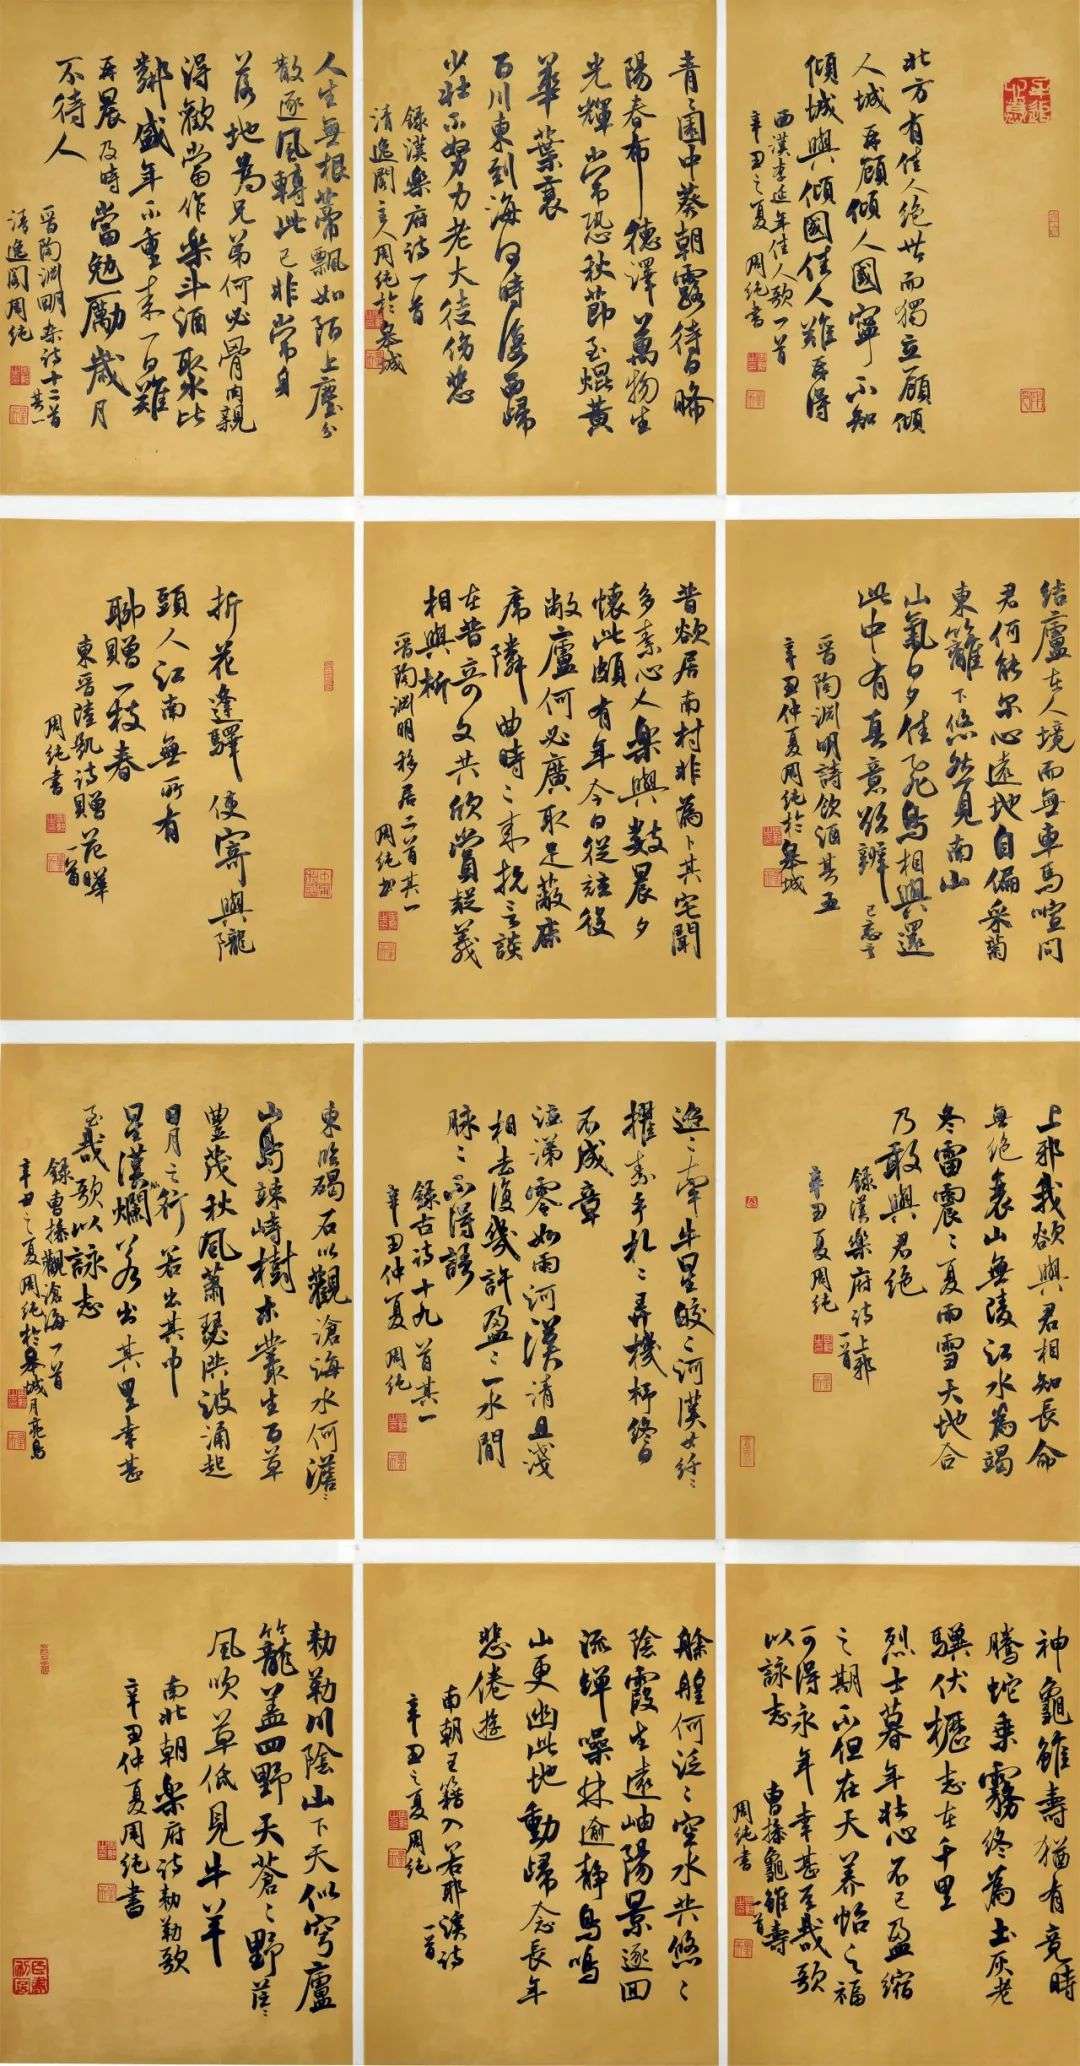 北方有佳人絕世而獨立顧傾
人城再顧傾人國寧不知
傾城與傾國佳人難再得
西漢李延年佳人歌一首
辛丑之夏周純書
青〻園中葵朝露待日晞
陽春布德澤萬物生
光輝常恐秋節至焜黃
華葉衰
百川東到海何時復西歸
少壯不努力老大徒傷悲
錄漢樂府詩一首
清逸閣主人周純於皋城
人生無根蒂飄如陌上塵分
散逐風轉此已非常身
落地為兄弟何必骨肉親
得歡當作樂斗酒聚比
鄰盛年不重来一日難
再晨及時當勉勵歲月
不待人
晉陶淵明杂詩十二首其一
清逸閣周純
結廬在人境而無車馬喧問
君何能尔心遠地自偏采菊
東籬下悠然見南山
山氣日夕佳飛鳥相與還
此中有真意欲辨已忘言
晉陶淵明詩飲酒其五
辛丑仲夏周純於皋城
昔欲居南村非為卜其宅聞
多素心人樂與數晨夕
懷此頗有年今日從茲役
敝廬何必廣取足蔽床
席隣曲時〻来抗言談
在昔奇文共欣賞疑義
相與析
晉陶淵明移居二首其一
周純書
折花逢驛使寄與隴
頭人江南無所有
聊贈一枝春
東晉陸凱詩贈范曄一首
周純書
上邪我欲與君相知長命
無絕衰山無陵江水為竭
冬雷震〻夏雨雪天地合
乃敢與君絕
錄漢樂府詩上邪一首
辛丑夏周純
迢〻牽牛星皎〻河漢女纤〻
擢素手札〻弄機杼終日
不成章
泣涕零如雨河漢清且淺
相去復幾許盈〻一水間
脉〻不得語
錄古詩十九首其一
辛丑仲夏周純
東臨碣石以觀滄海水何澹〻
山島竦峙樹木叢生百草
豐茂秋風蕭瑟洪波涌起
日月之行若出其中
星漢爛若出其里幸甚
至哉歌以詠志
錄曹操觀滄海一首
辛丑之夏周純於皋城月亮島
神龜雖壽猶有竟時
騰蛇乘霧終為土灰老
驥伏櫪志在千里
烈士暮年壯心不已盈縮
之期不但在天養怡之福
可得永年幸甚至哉歌
以詠志
曹操龜雖壽一首
周純書
艅艎何泛〻空水共悠〻
陰霞生遠岫陽景逐回
流蟬噪林逾静鳥鳴
山更幽此地動歸念長年
悲倦遊
南朝王籍入若耶溪詩一首
辛丑之夏周純
勅勒川陰山下天似穹廬
籠蓋四野天蒼〻野茫〻
風吹草低見牛羊
南北朝樂府詩勅勒歌
辛丑仲夏周純書